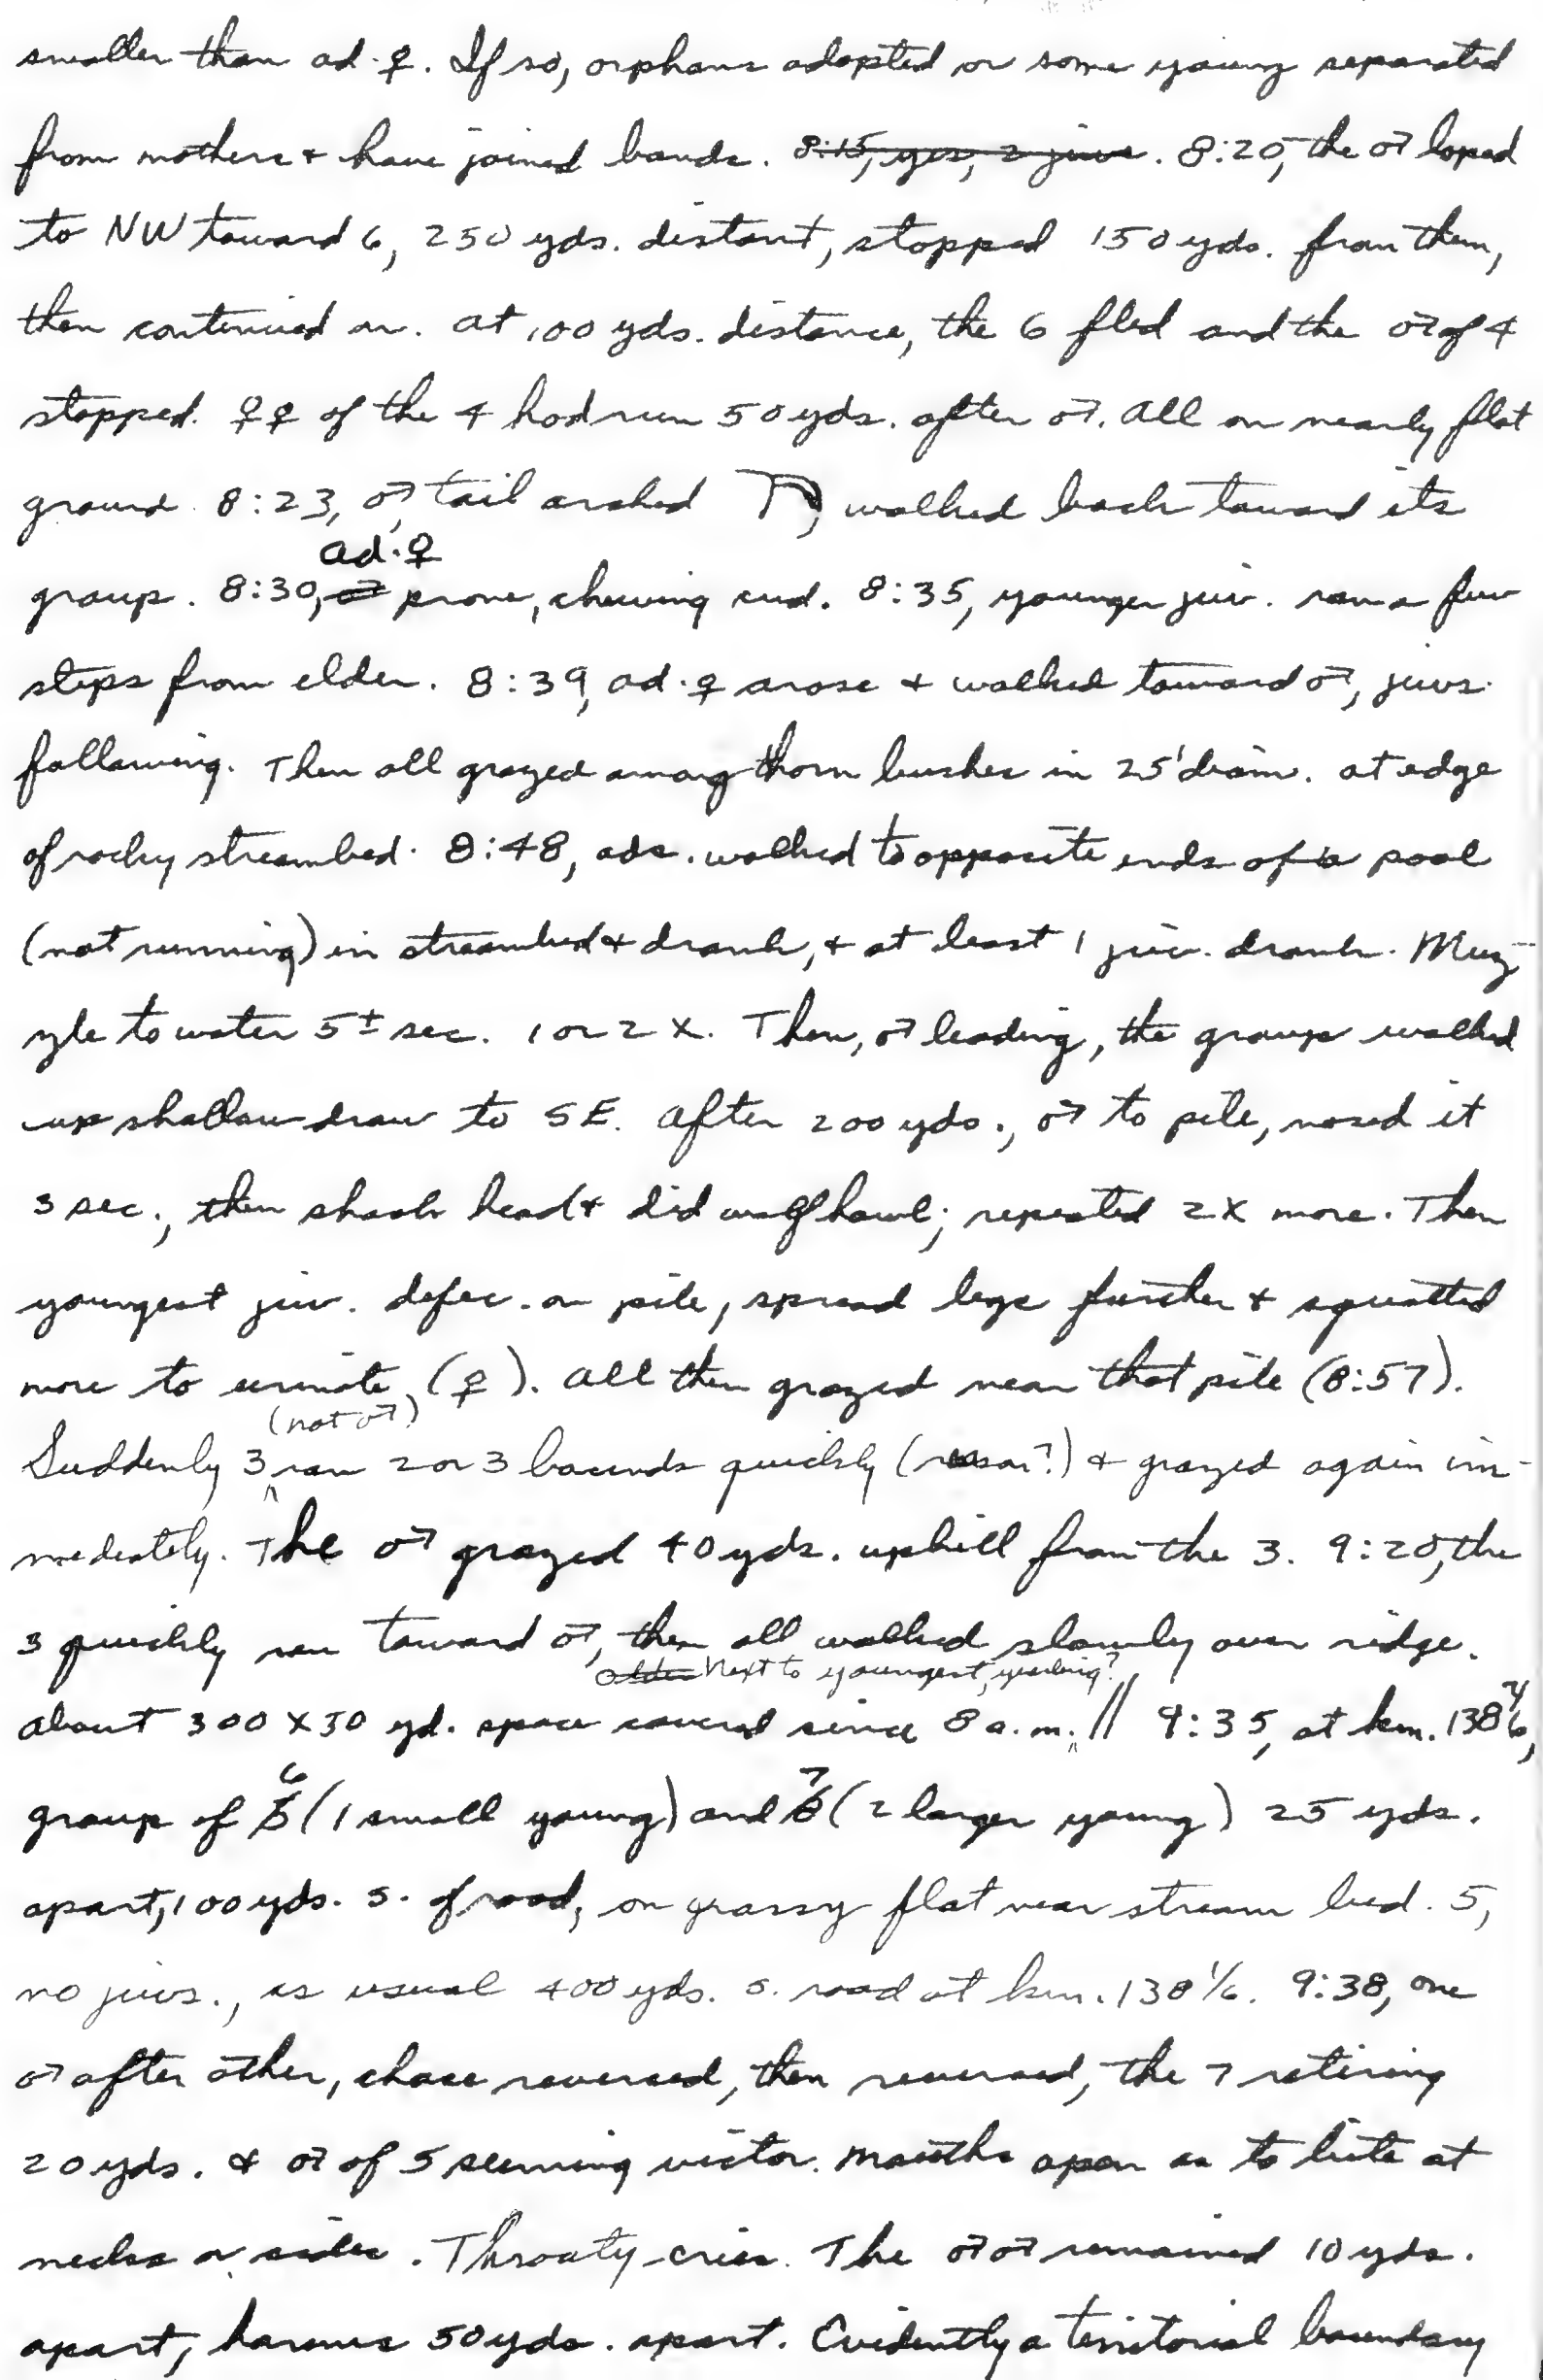 smaller than ad. ♀. If so, orphans adopted or some young separated
from mothers + have joined bands. 8:15, yes, 2 juvs. 8:20, the ♂ loped
to NW toward 6, 250 yds. distant, stopped 150 yds. from them,
then continued on. At 100 yds. distance, the 6 fled and the ♂ of 4
stopped. ♀♀ of the 4 had run 50 yds. after ♂. All on nearly flat
ground. 8:23, ♂, tail arched, walked back toward its
ad. ♀
group. 8:30, ♂ prone, chewing cud. 8:35, younger juv. ran a few
steps from elder. 8:39, ad. ♀ arose + walked toward ♂, juvs.
following. Then all grazed among thorn bushes in 25' diam. at edge
of rocky streambed. 8:48, ads. walked to opposite ends of a pool
(not running) in streambed + drank, + at least 1 juv. drank. Muz-
zle to water 5± sec. 1 or 2 X. Then, ♂ leading, the group walked
up shallow draw to SE. After 200 yds., ♂ to pile, nosed it
3 sec., then shook head + did wolf howl; repeated 2X more. Then
youngest juv. defec. on pile, spread legs further + squatted
more to urinate (♀). All then grazed near that pile (8:57).
(not ♂)
Suddenly 3 ran 2 or 3 bounds quickly (reason?) + grazed again im-
mediately. The ♂ grazed 40 yds. uphill from the 3. 9:20, the
3 quickly ran toward ♂, then all walked slowly over ridge.
Older Next to youngest, yearling?
About 300 X 50 yd. space covered since 8 a.m. // 9:35, at km. 138
group of 6 (1 small young) and 7 (2 larger young) 25 yds.
apart, 100 yds. S. of road, on grassy flat near stream bed. 5,
no juvs., as usual 400 yds. S. road at km. 138 1/6. 9:38, one
♂ after other, chase reversed, then reversed, the 7 retiring
20 yds. & ♂ of 5 seeming victor. Mouths open as to bite at
necks or sides. Throaty cries. The ♂♂ remained 10 yds.
apart, harems 50 yds. apart. Evidently a territorial boundary